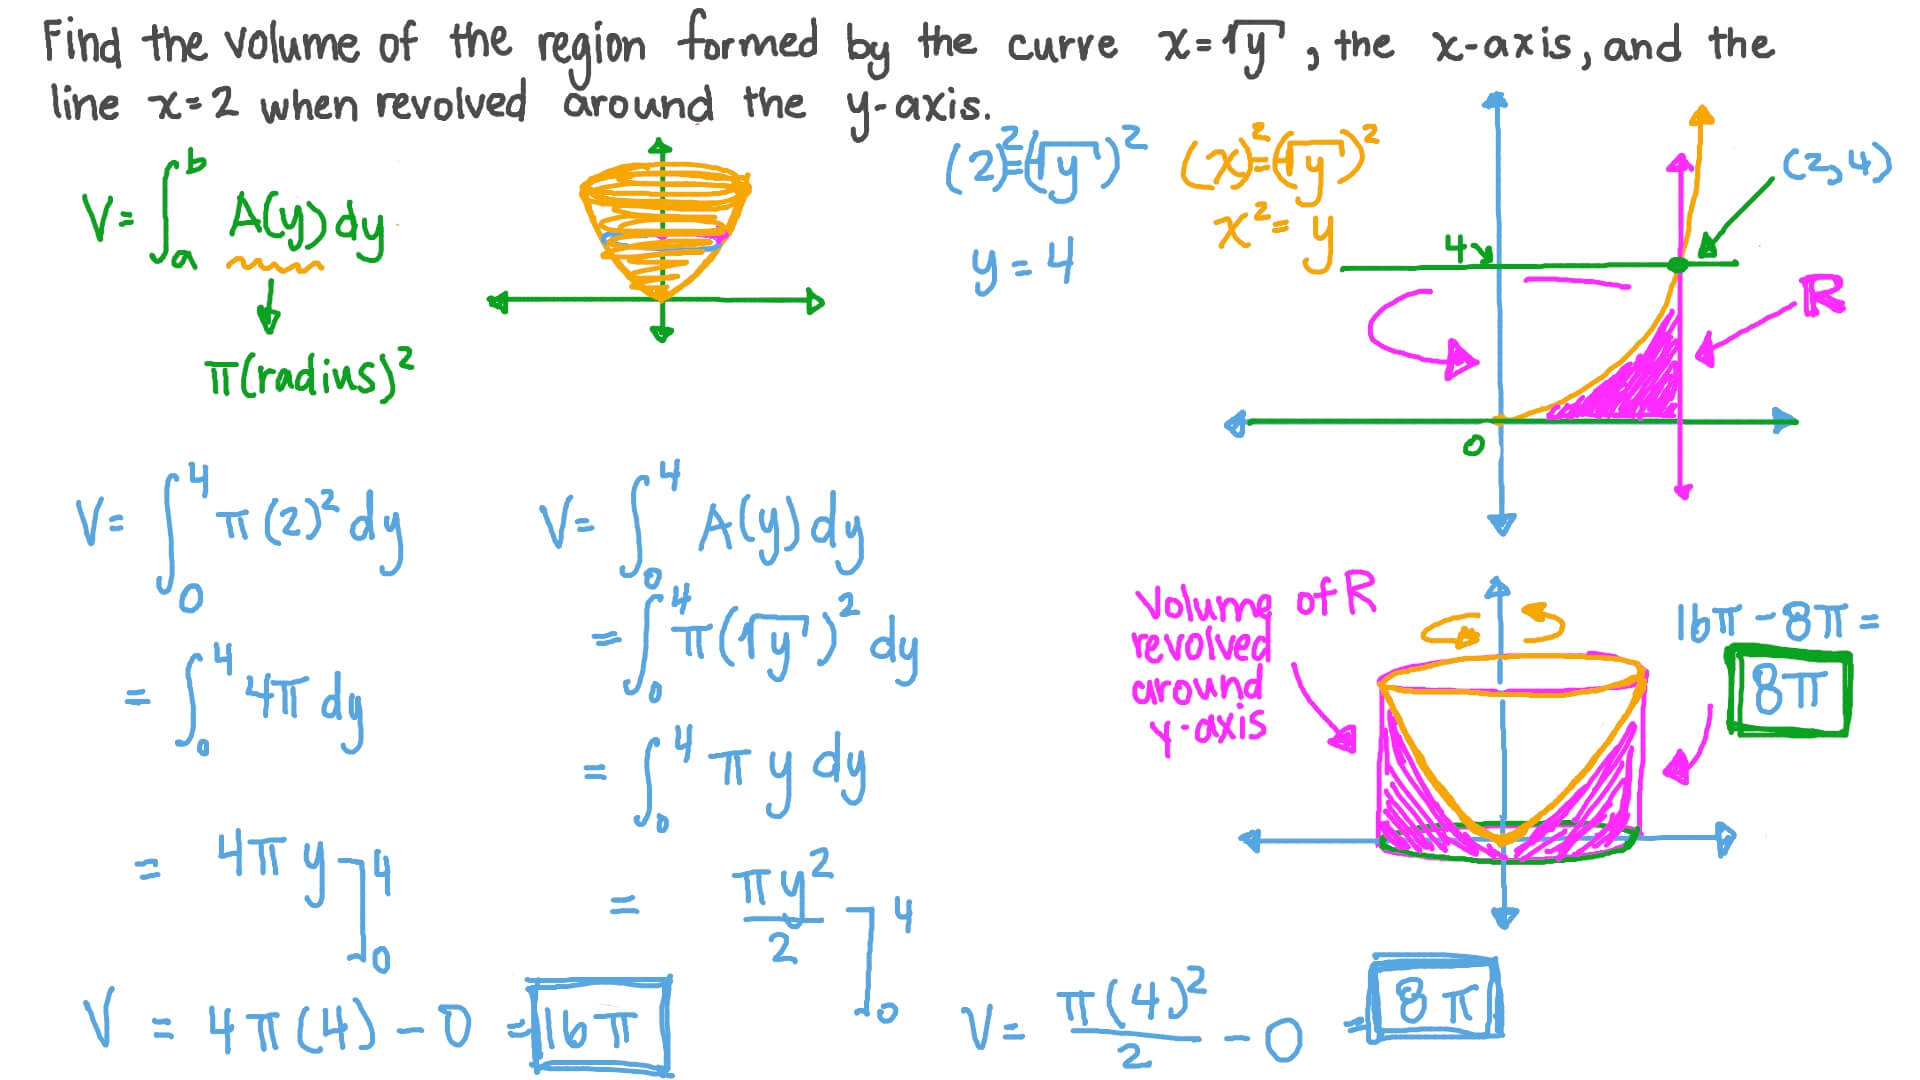 Find the volume of the region formed by the curve x=√y, the x-axis, and the
line x=2 when revolved around the y-axis.
V=∫ₐᵇ A(y)dy
π(radius)²
(2)²=(√y)²
y=4
(x)²=(√y)²
x²=y
(2,4)
4
R
0
V=∫₀⁴ π(2)² dy
=∫₀⁴ 4π dy
= 4πy]₀⁴
V = 4π(4)-0 = 16π
V=∫₀⁴ A(y)dy
=∫₀⁴ π(√y)² dy
=∫₀⁴ πy dy
= πy²/2 ]₀⁴
V= π(4)²/2 - 0 = 8π
Volume of R
revolved
around
y-axis
16π-8π=
8π